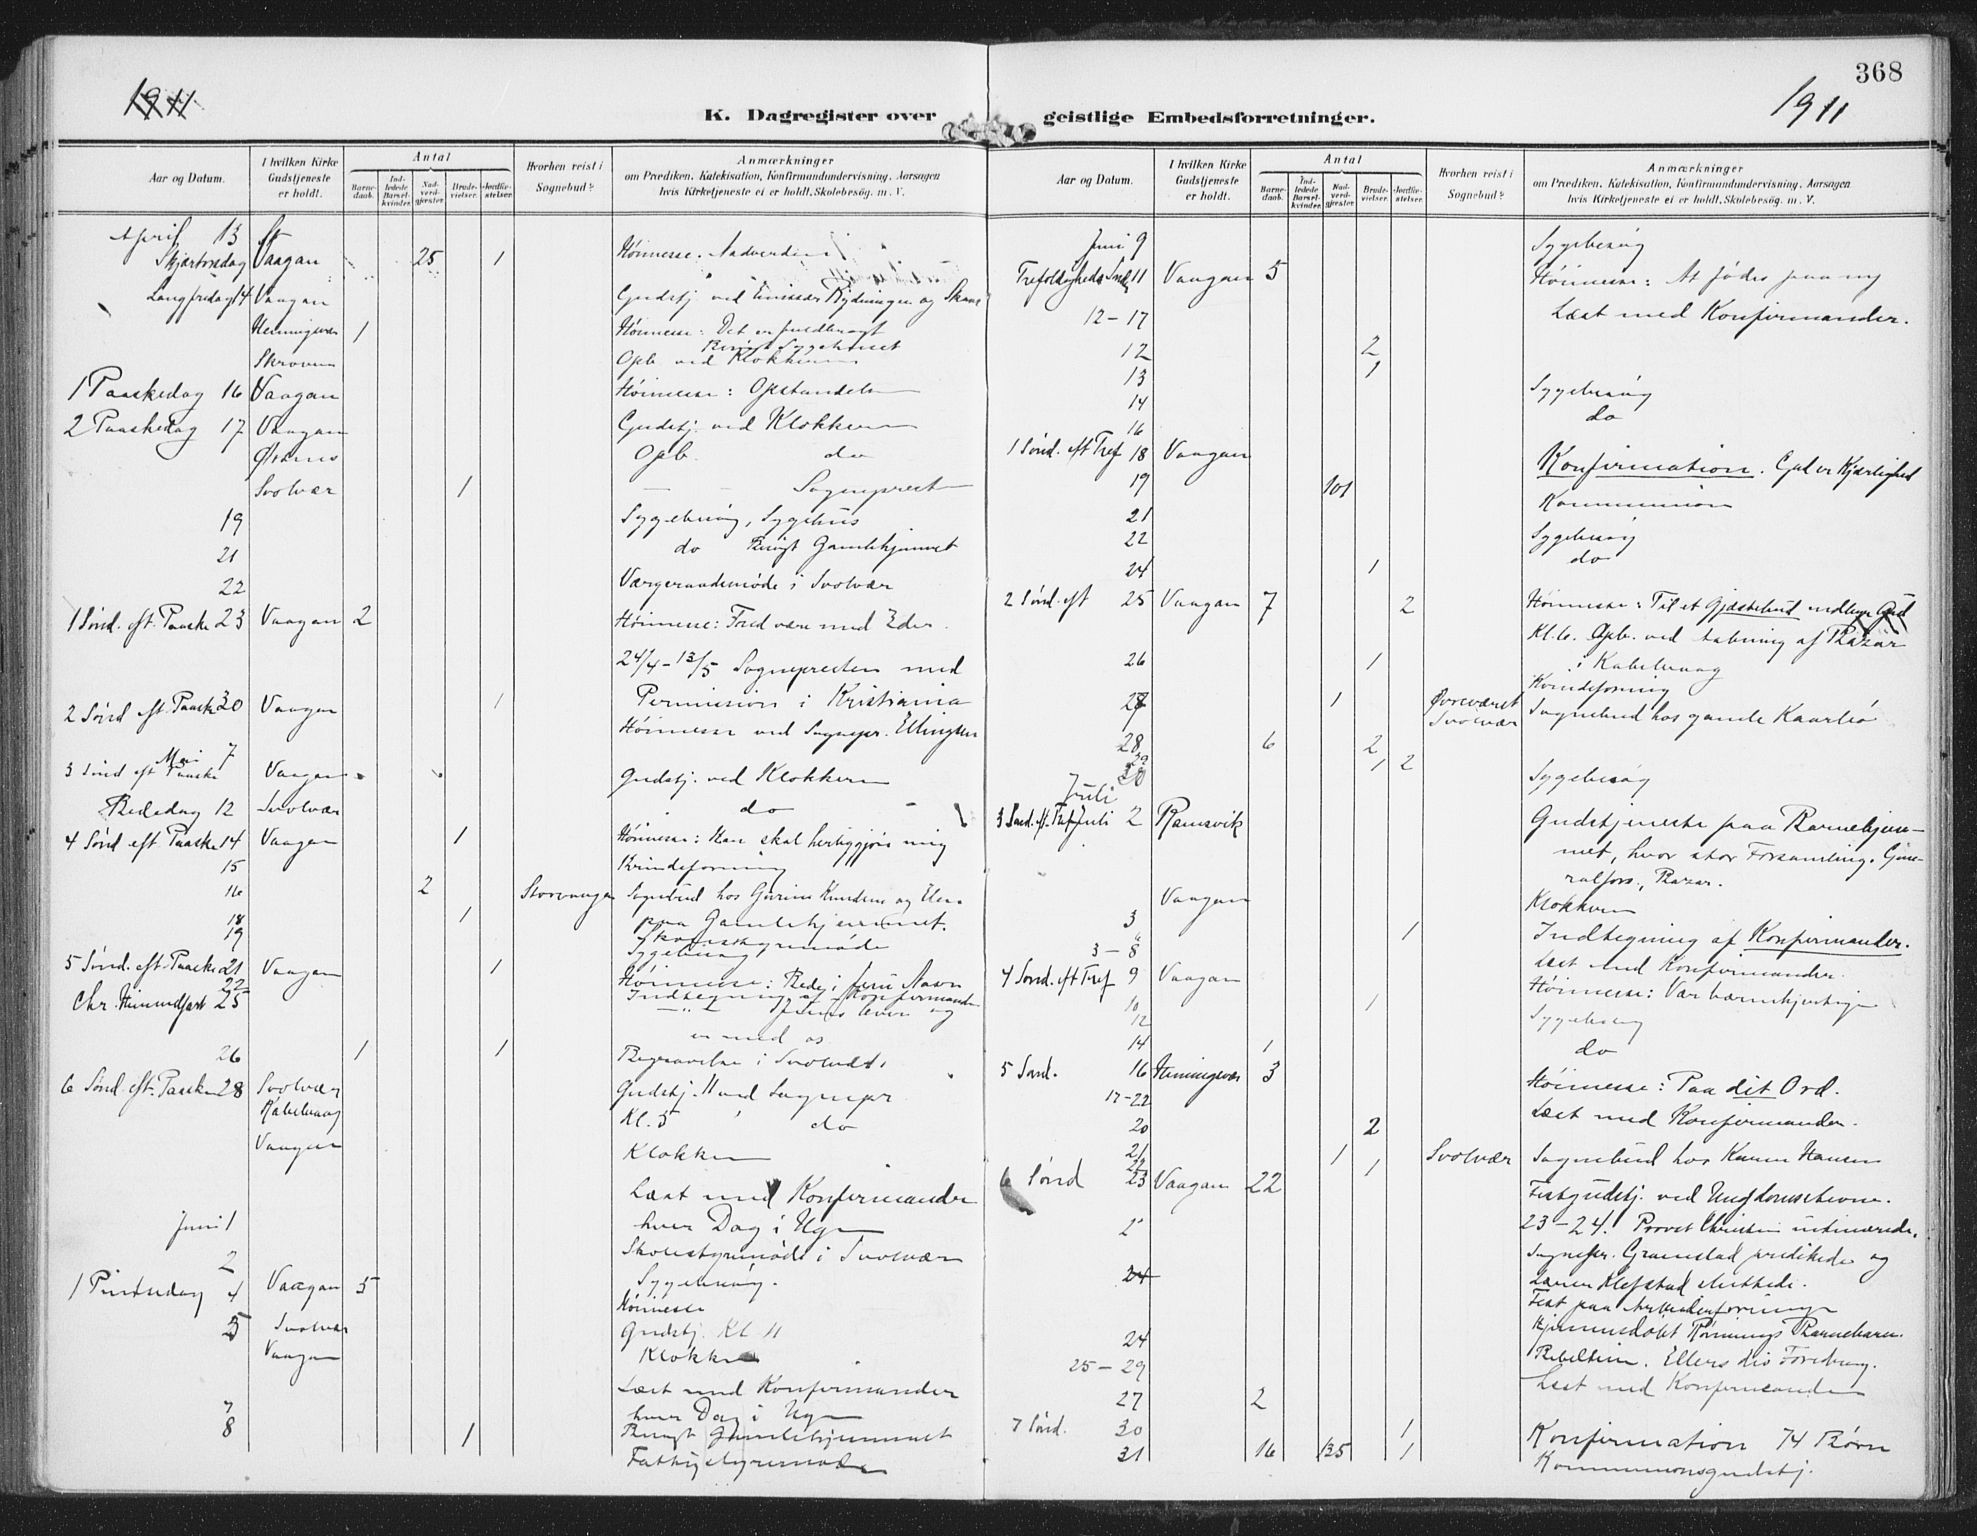 1911
K. Dagregister over
Aar og Datum.
I hvilken Kirke Gudstjeneste er holdt.
Antal
Barnedaab.
Indledede Barselkvinder.
Nadverdgjester.
Brudevielser.
Jordfæstelser.
Hvorhen reist i Sognebud?
Anmærkninger
om Prædiken, Katekisation, Konfirmandundervisning, Aarsagen
hvis Kirketjeneste ei er holdt, Skolebesøg, m. V.
April 13
Skjærtorsdag Vaagan 25 1 Høimesse. Nadverden
Langfredag 14 Vaagan Gudstj. ved Emissær Rydningen og
Henningsvær 1 Høimesse: Det er fuldbragt
Besøgt Sygehuset
Skroven Opb. ved Klokkeren
1 Paaskedag 16 Vaagan Høimesse: Opstandelse
2 Paaskedag 17 Vaagan Gudstj. ved Klokkeren
Østnes Opb. do
Svolvær 1 — — Sogneprest
19 Sygebesøg, Sygehus
21 do Besøgt Gamlehjemmet
22 Værgeraadsmøde i Svolvær
1 Sønd. eft. Paaske 23 Vaagan 2 Høimesse: Fred være med Eder.
24/4 – 13/5 Sognepresten med
2 Sønd eft. Paaske 30 Vaagan 1 Permission i Kristiania
Høimesse ved Sognepr. Ellingsen
Mai 7
3 Sønd eft Paaske Vaagan Gudstj. ved Klokkeren
Bededag 12 Svolvær do
4 Sønd eft Paaske 14 Vaagan 1 Høimesse: Han skal herliggjøre mig
15 Kvindeforening
16 2 Storvaagen Sognebud hos
18 1 paa Gamlehjemmet.
19 Skolestyremøde
Sygebesøg
5 Sønd. eft. Paaske 21 Vaagan 1 Høimesse: Bede i Jesu Navn
22 Indtegning af Konfirmander
Chr. Himmelfart 25 Jesus lever og
er med os
26 1 1 Begravelse i Svolvær
6 Sønd. eft. Paaske 28 Svolvær Gudstj. 11 ved Sognepr
Kabelvaag Kl. 5 do
Vaagan Klokkeren
Læst med Konfirmander
Juni 1 hver Dag i Ugen
2 Skolestyremøde i Svolvær
Sygebesøg.
1 Pinsedag 4 Vaagan 5 Høimesse
5 Svolvær Gudstj. Kl. 11
Vaagan Klokker
Læst med Konfirmander
7 hver Dag i Ugen
8 1 Besøgt Gamlehjemmet
Fattigstyremøde
368
1911
geistlige Embedsforretninger.
Aar og Datum.
I hvilken Kirke Gudstjeneste er holdt.
Antal
Barnedaab.
Indledede Barselkvinder.
Nadverdgjester.
Brudevielser.
Jordfæstelser.
Hvorhen reist i Sognebud?
Anmærkninger
om Prædiken, Katekisation, Konfirmandundervisning, Aarsagen
hvis Kirketjeneste ei er holdt, Skolebesøg, m. V.
Juni 9 Sygebesøg
Trefoldigheds Snd 11 Vaagan 5 Høimesse: At fødes paa ny
12 – 17 Læst med Konfirmander.
12 2
13 1
14 Sygebesøg
16 do
1 Sønd. eft Tref 18 Vaagan Konfirmation. Gud er Kjærlighed
19 101 Kommunion
21 Sygebesøg
22 do
24 1
2 Sønd. eft 25 Vaagan 7 2 Høimesse: Til et Gjæstebud indbyr Gud
Kl. 6. Opb. ved aabning af Bazar
26 1 i Kabelvaag
Kvindeforening
27 1 Svolvær Sognebud hos gamle
28 6 2
29 1 2
30 Sygebesøg
Juli
3 Sønd. eft. Tref Juli 2 Ramsvik Gudstjeneste paa Barnehjem-
met, hvor stor Forsamling. Gene-
ralfors., Bazar.
Vaagan Klokkeren
3 1 Indtegning af Konfirmander.
3 – 8 Læst med Konfirmander.
4 Sønd. eft Tref 9 Vaagan Høimesse: Vær barmhjertige
10 1 Sygebesøg
12 do
14 1
5 Sønd. 16 Henningsvær 3 Høimesse: Paa dit Ord.
17–22 Læst med Konfirmander.
20 2
21 1 Svolvær Sognebud hos Karen Hansen
22 1
6 Sønd 23 Vaagan 22 Festgudstj. ved Ungdomsstevne.
23–24. Provst Christie
Sognepr. Gramstad prædikede og
24 Lærer Klefstad sluttede.
Fest paa
24
25 – 29 Læst med Konfirmander
27 2
7 Sønd. 30 1 Konfirmation 74 Børn
31 16 135 1 Kommunionsgudstj.